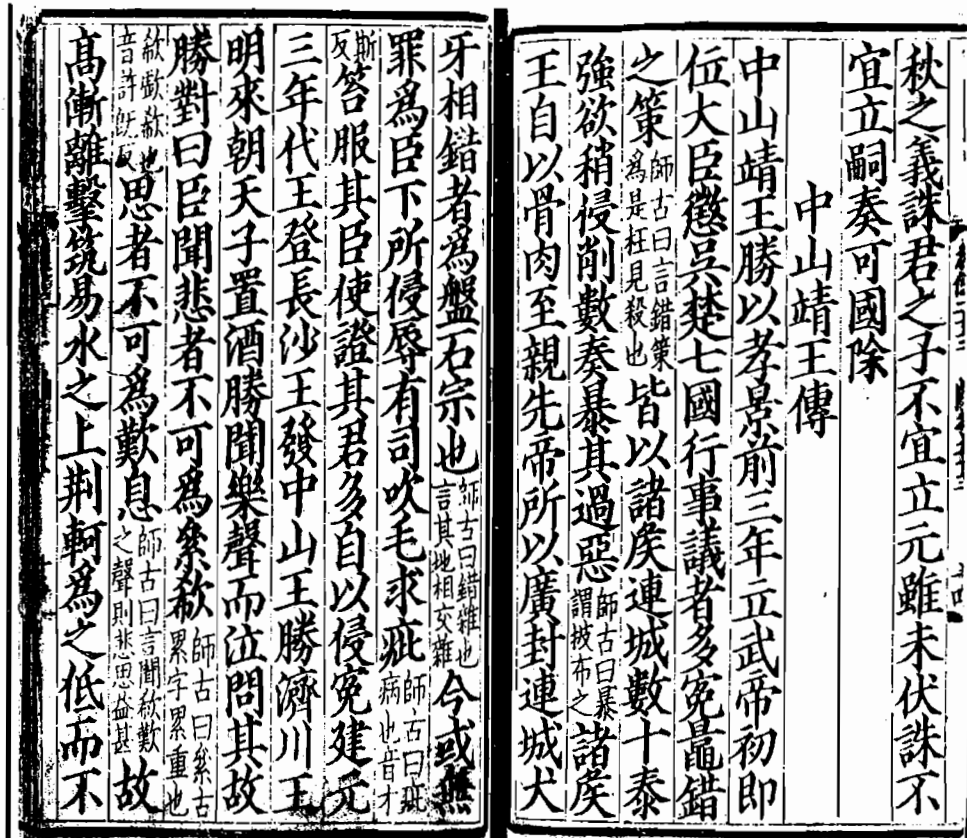 秋之義誅君之子不宜立元雖未伏誅不
宜立嗣奏可國除
中山靖王傳
中山靖王勝以孝景前三年立武帝初即
位大臣懲吳楚七國行事議者多冤鼂錯
之策師古曰言錯策爲是枉見殺也皆以諸侯連城數十泰
強欲稍侵削數奏暴其過惡師古曰暴謂披布之諸侯
王自以骨肉至親先帝所以廣封連城犬
牙相錯者爲盤石宗也師古曰錯雜也言其地相交雜今或無
罪爲臣下所侵辱有司吹毛求疵師古曰疵病也音才
斯反笞服其臣使證其君多自以侵冤建元
三年代王登長沙王發中山王勝濟川王
明來朝天子置酒勝聞樂聲而泣問其故
勝對曰臣聞悲者不可爲絫欷師古曰絫古累字累重也
欷歔欷也音許旣反思者不可爲歎息師古曰言聞欷歎之聲則悲思益甚故
高漸離擊筑易水之上荆軻爲之低而不